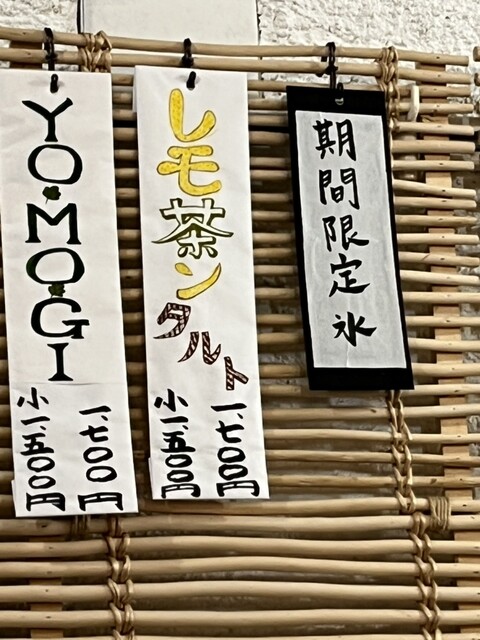 期間限定氷
レモ茶ンタルト
一、七〇〇円
小一、五〇〇円
YO.MO.GI
一、七〇〇円
小一、五〇〇円